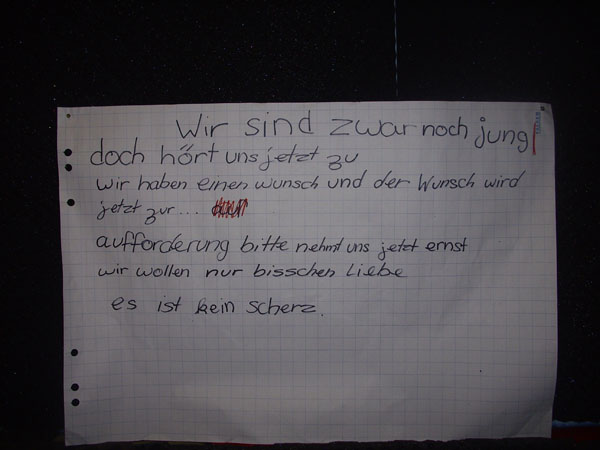 Wir sind zwar noch jung
doch hört uns jetzt zu
wir haben einen wunsch und der Wunsch wird
jetzt zur...
aufforderung bitte nehmt uns jetzt ernst
wir wollen nur bisschen Liebe
es ist kein scherz.